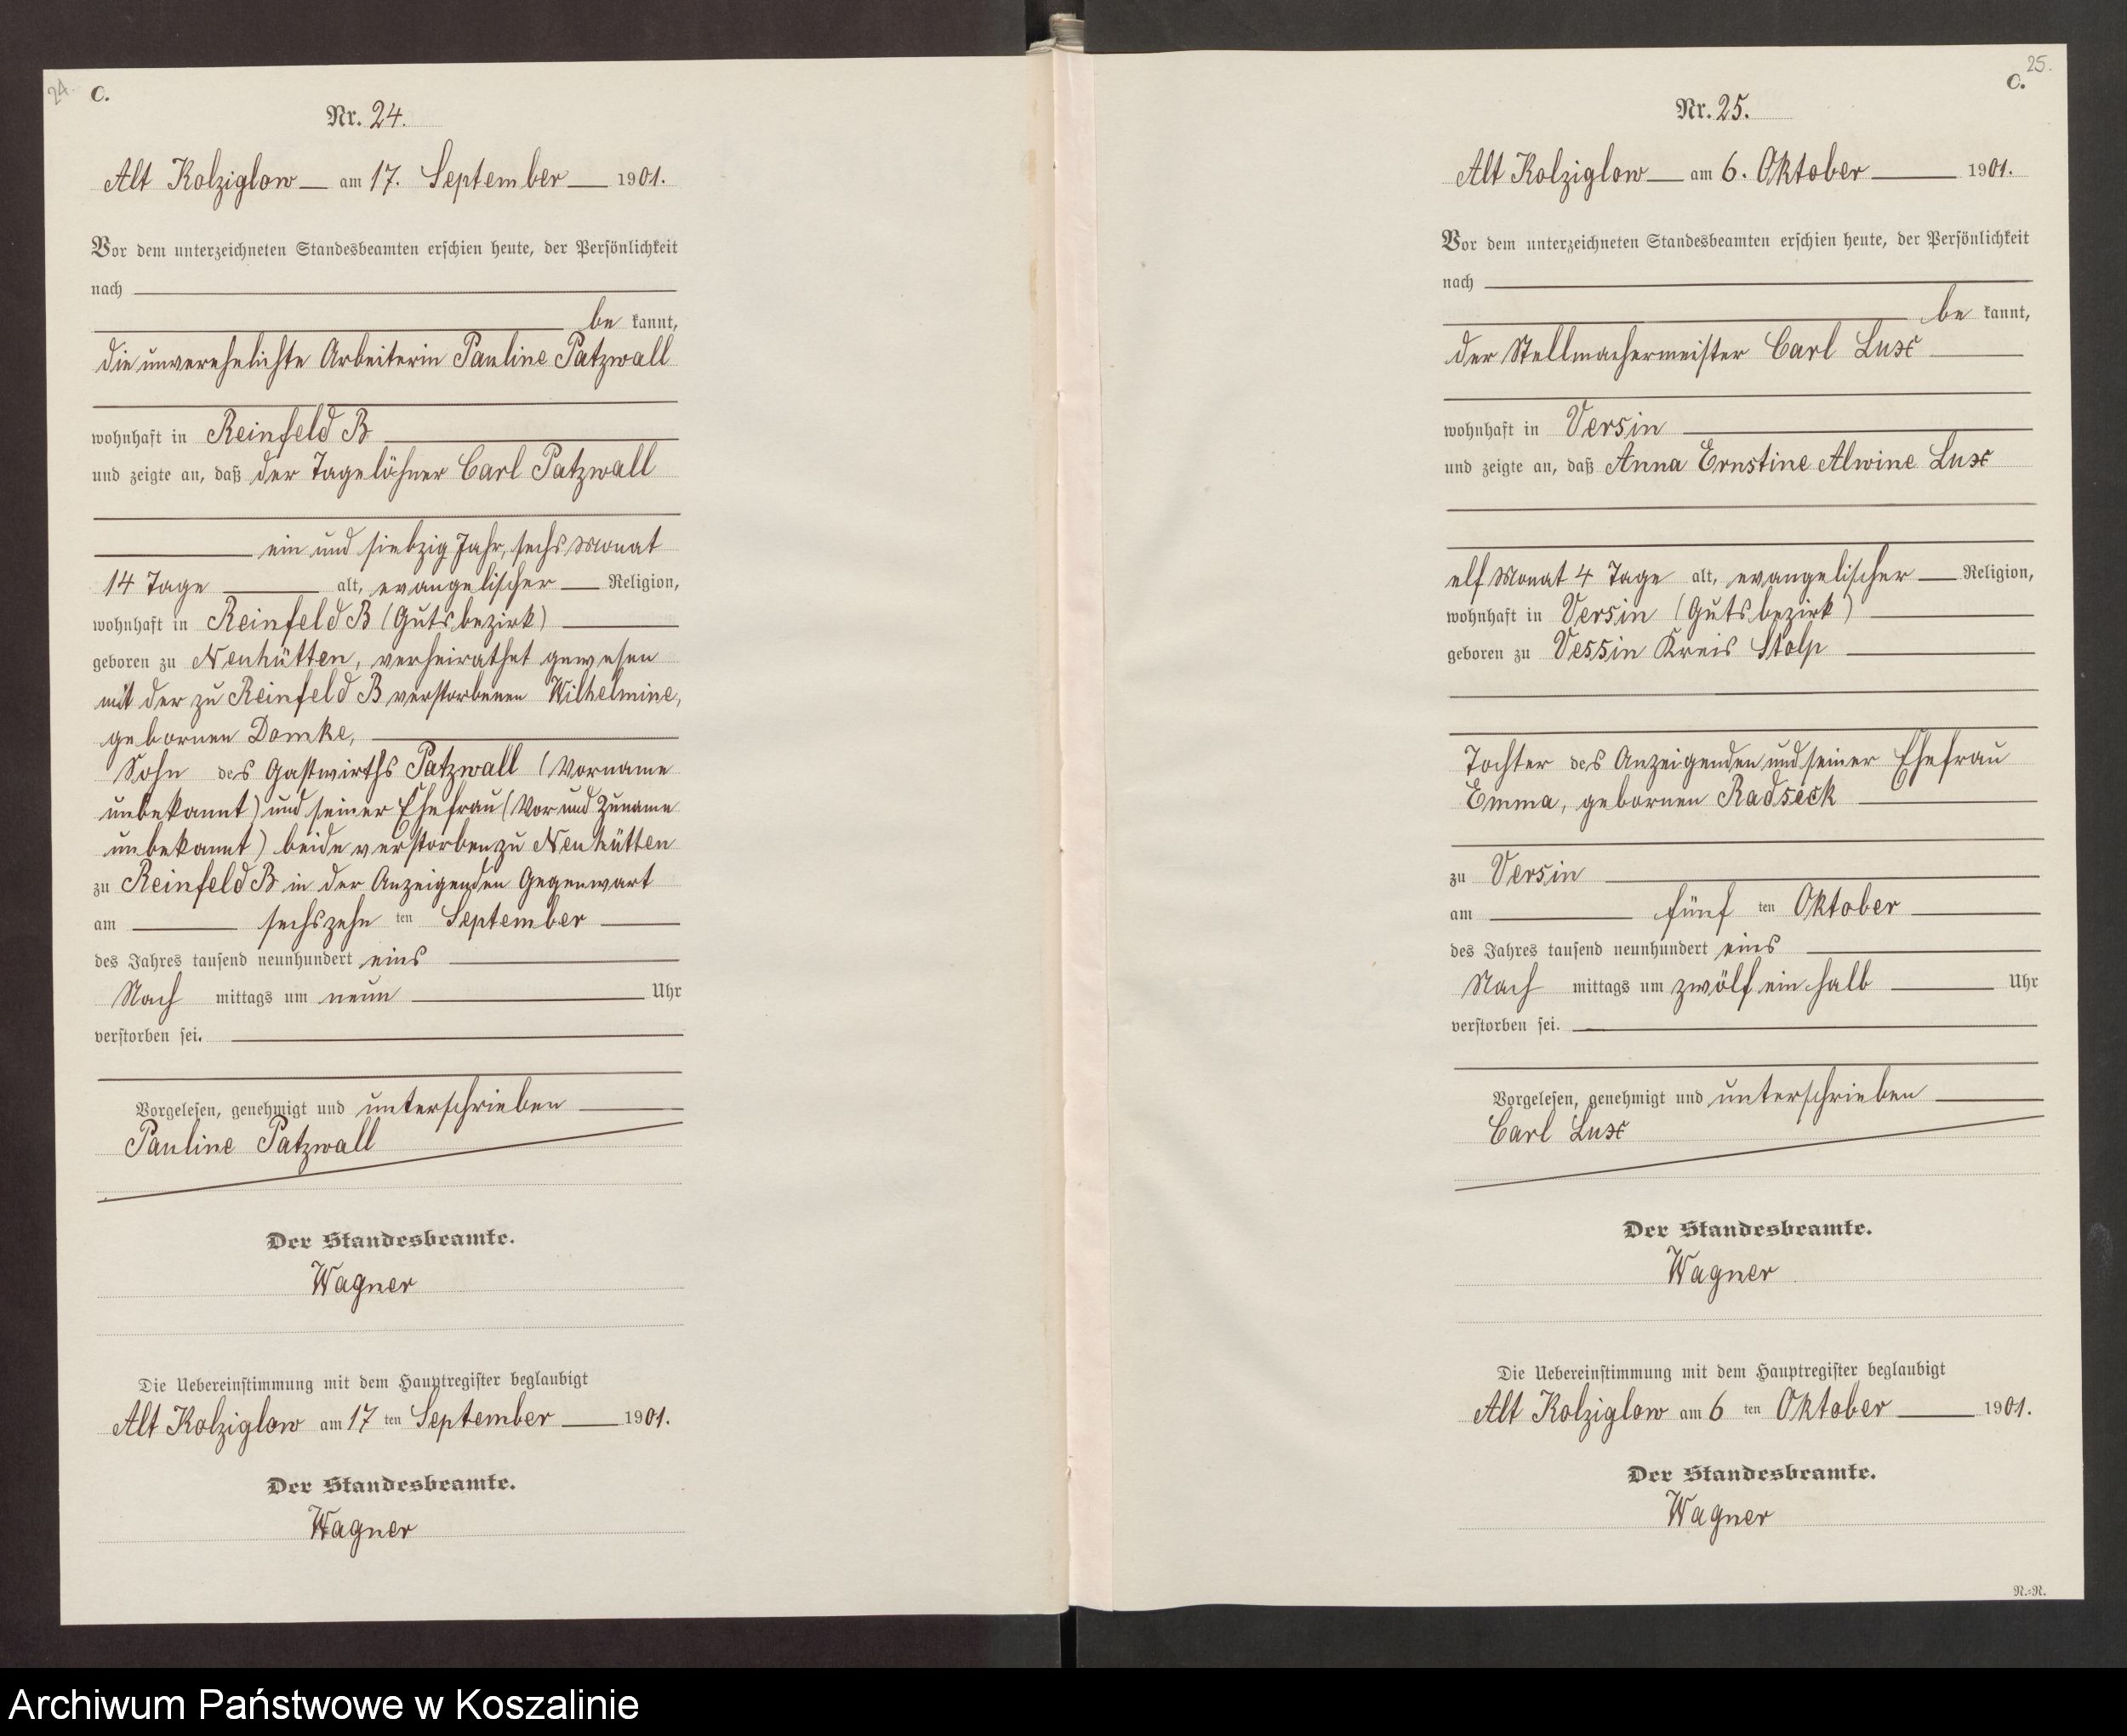 24.
C.
Nr. 24.
Alt Kolziglow am 17. September 1901.
Vor dem unterzeichneten Standesbeamten erschien heute, der Persönlichkeit
nach
be kannt,
die unverehelichte Arbeiterin Pauline Patzwall
wohnhaft in Reinfeld B
und zeigte an, daß der Tagelöhner Carl Patzwall
ein und siebzig Jahr, sechs Monat
14 Tage alt, evangelischer Religion,
wohnhaft in Reinfeld B (Gutsbezirk)
geboren zu Neuhütten, verheirathet gewesen
mit der zu Reinfeld B verstorbenen Wilhelmine,
gebornen Domke,
Sohn des Gastwirths Patzwall (Vorname
unbekannt) und seiner Ehefrau (Vor und Zuname
unbekannt) beide verstorben zu Neuhütten
zu Reinfeld B in der Anzeigenden Gegenwart
am sechszehn ten September
des Jahres tausend neunhundert eins
Nach mittags um neun Uhr
verstorben sei.
Vorgelesen, genehmigt und unterschrieben
Pauline Patzwall
Der Standesbeamte.
Wagner
Die Uebereinstimmung mit dem Hauptregister beglaubigt
Alt Kolziglow am 17 ten September 1901.
Der Standesbeamte.
Wagner
25.
C.
Nr. 25.
Alt Kolziglow am 6. Oktober 1901.
Vor dem unterzeichneten Standesbeamten erschien heute, der Persönlichkeit
nach
be kannt,
der Stellmachermeister Carl Lux
wohnhaft in Versin
und zeigte an, daß Anna Ernstine Alwine Lux
elf Monat 4 Tage alt, evangelischer Religion,
wohnhaft in Versin (Gutsbezirk)
geboren zu Vessin Kreis Stolp
Tochter des Anzeigenden und seiner Ehefrau
Emma, gebornen Radseck
zu Versin
am fünf ten Oktober
des Jahres tausend neunhundert eins
Nach mittags um zwölf ein halb Uhr
verstorben sei.
Vorgelesen, genehmigt und unterschrieben
Carl Lux
Der Standesbeamte.
Wagner
Die Uebereinstimmung mit dem Hauptregister beglaubigt
Alt Kolziglow am 6 ten Oktober 1901.
Der Standesbeamte.
Wagner
N.=N.
Archiwum Państwowe w Koszalinie